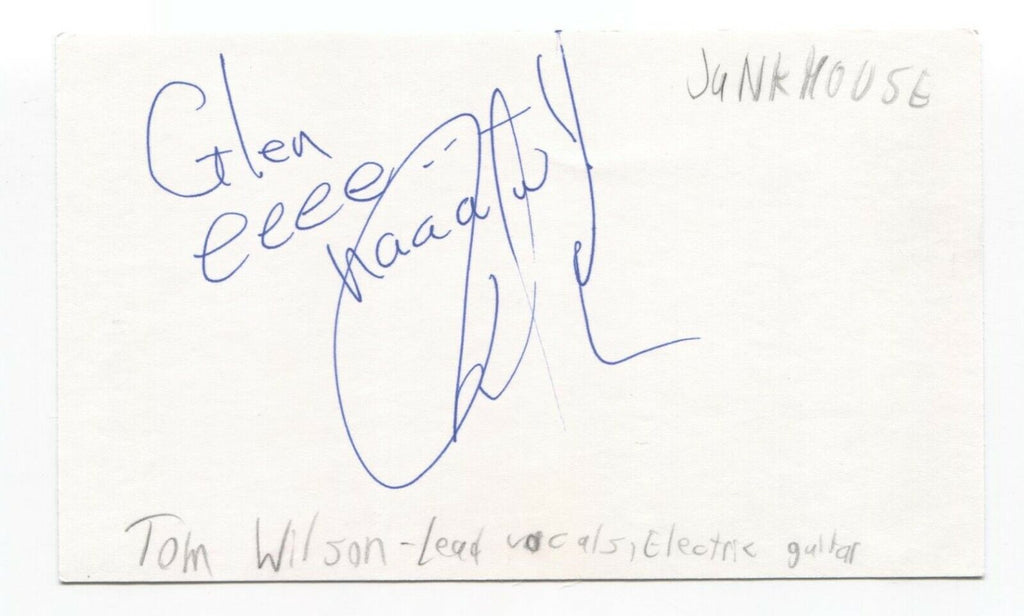 JUNKHOUSE
Glen
eeee
Kaaa
Tom Wilson - Lead vocals, Electric guitar